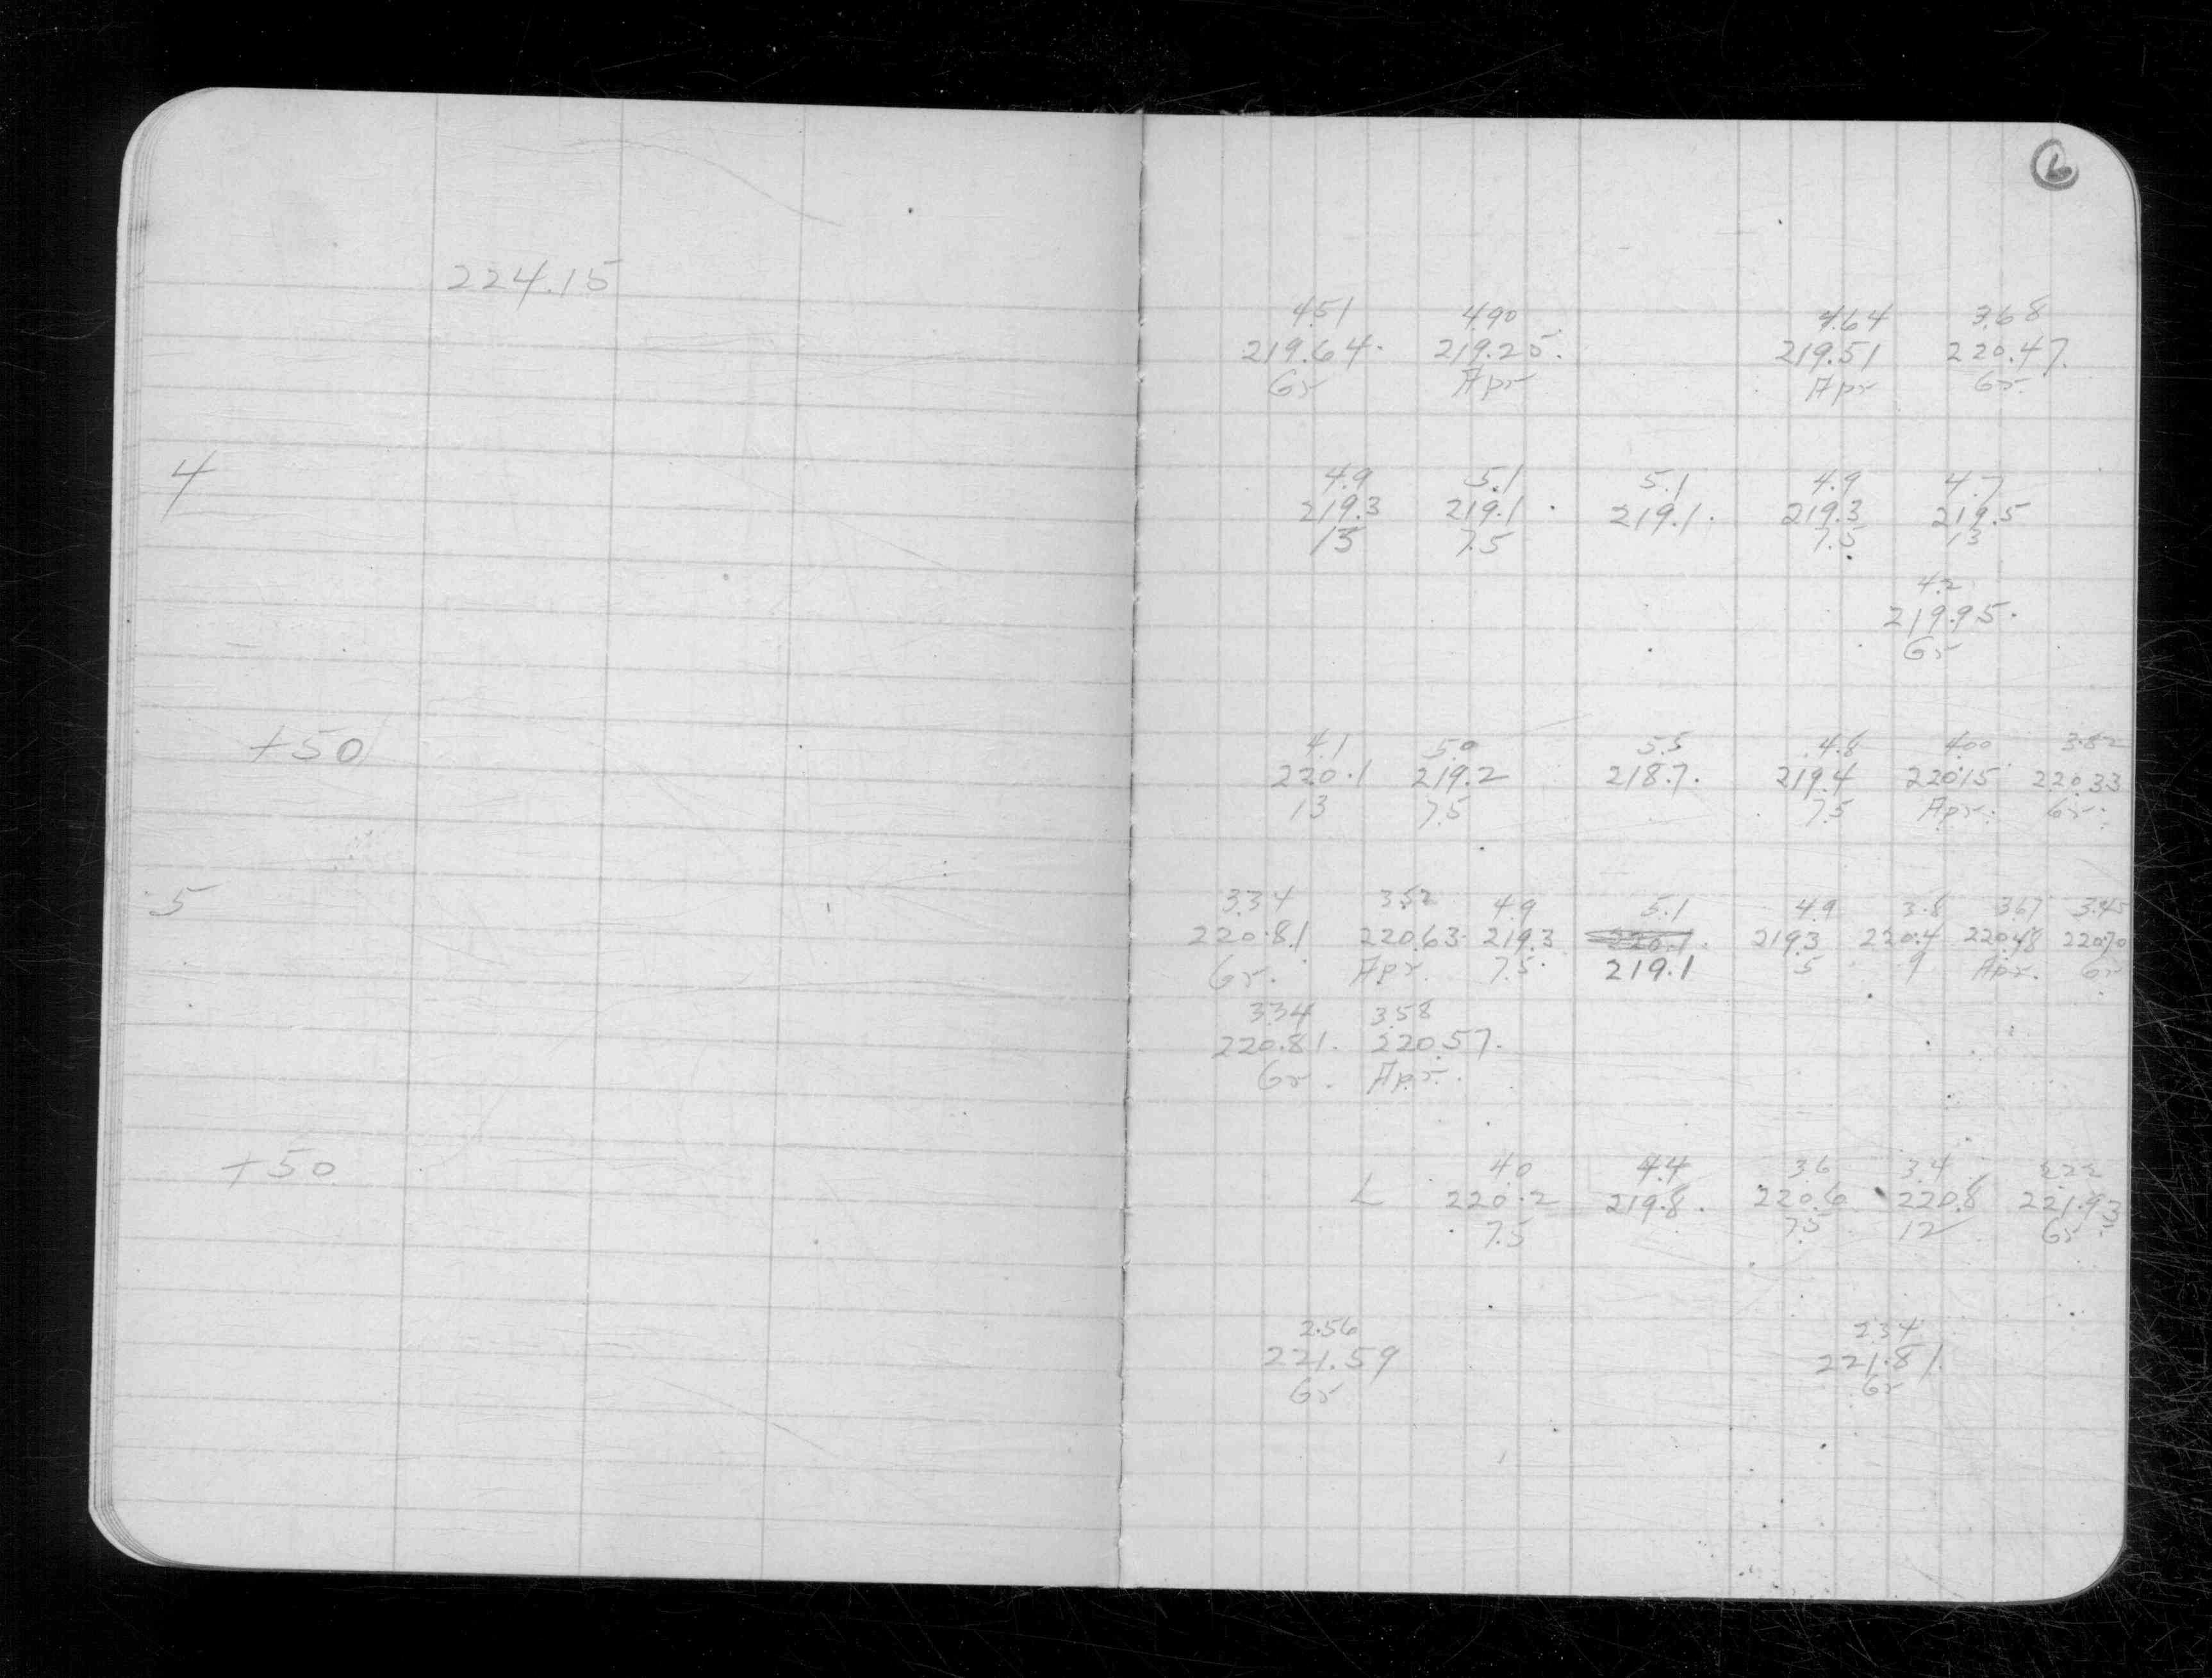 6
224.15
4.51 4.90 4.64 3.68
219.64. 219.25. 219.51 220.47.
Gr Apr Apr Gr.
4
4.9 5.1 5.1 4.9 4.7
219.3 219.1 . 219.1. 219.3 219.5
13 7.5 7.5 13
4.2
219.95.
Gr
+50
4.1 5.0 5.5 4.8 4.00 3.82
220.1 219.2 218.7. 219.4 220.15 220.33
13 7.5 7.5 Apr. Gr.
5
3.34 3.52 4.9 5.1 4.9 3.8 3.67 3.45
220.81 220.63 219.3 220.7. 219.3 220.4 220.48 220.70
Gr. Apr. 7.5. 219.1 5 9 Apr. Gr
3.34 3.58
220.81. 220.57.
Gr. Apr.
+50
4.0 4.4 3.6 3.4 2.22
L 220.2 219.8. 220.6 220.8 221.93
7.5 7.5 12 Gr
2.56 2.34
221.59 221.81.
Gr Gr